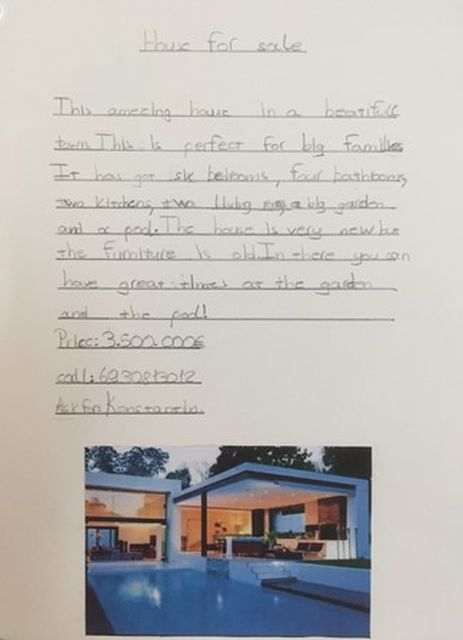 House for sale
This amezing house in a beatifull
town. This is perfect for big families
It has got six bedrooms, four bathrooms,
two kitchens, two living a big garden
and a pool. The house is very new but
the furniture is old. In there you can
have great times at the garden
and the pool!
Price: 3.500.000€
call:
Ask for Konstantin.